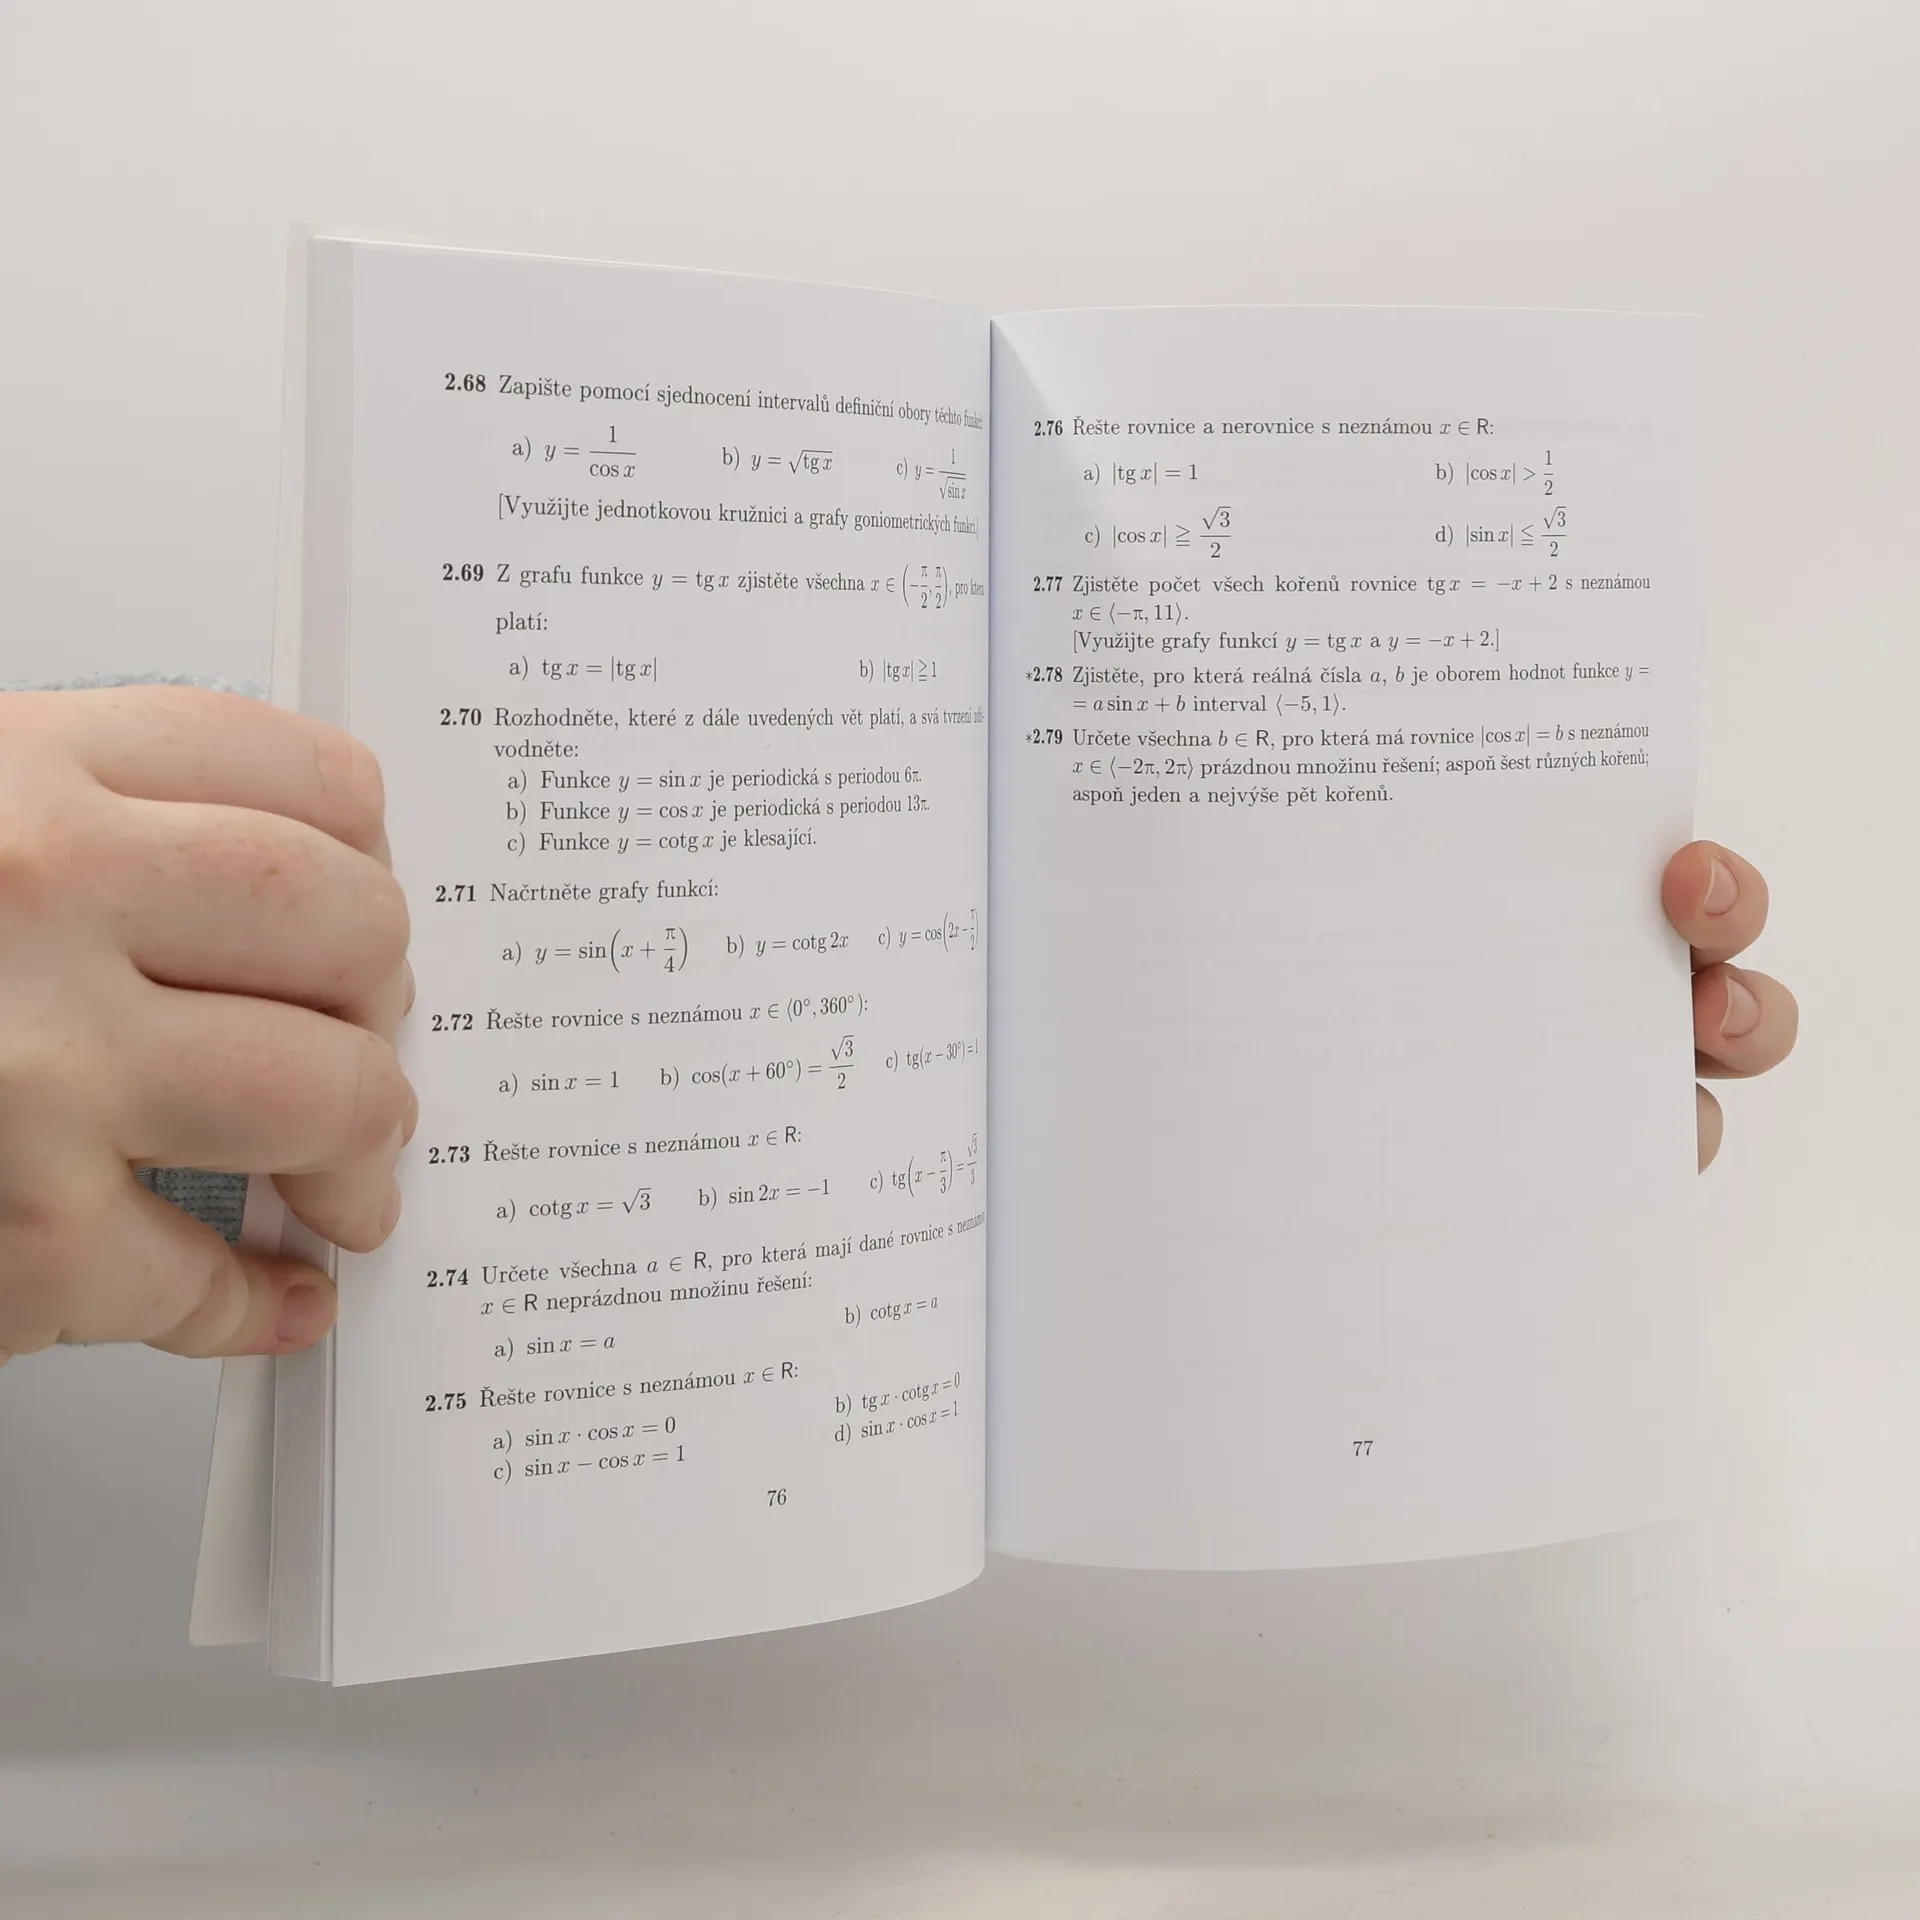 2.68 Zapište pomocí sjednocení intervalů definiční obory těchto funkcí:
a) y = 1/cos x b) y = √tg x c) y = 1/√sin x
[Využijte jednotkovou kružnici a grafy goniometrických funkcí.]
2.69 Z grafu funkce y = tg x zjistěte všechna x ∈ (−π/2, π/2), pro která
platí:
a) tg x = |tg x| b) |tg x| ≧ 1
2.70 Rozhodněte, které z dále uvedených vět platí, a svá tvrzení
vodněte:
a) Funkce y = sin x je periodická s periodou 6π.
b) Funkce y = cos x je periodická s periodou 13π.
c) Funkce y = cotg x je klesající.
2.71 Načrtněte grafy funkcí:
a) y = sin(x + π/4) b) y = cotg 2x c) y = cos(2x − π/2)
2.72 Řešte rovnice s neznámou x ∈ ⟨0°, 360°):
a) sin x = 1 b) cos(x + 60°) = √3/2 c) tg(x − 30°) = 1
2.73 Řešte rovnice s neznámou x ∈ R:
a) cotg x = √3 b) sin 2x = −1 c) tg(x − π/3) = √3/3
2.74 Určete všechna a ∈ R, pro která mají dané rovnice s neznámou
x ∈ R neprázdnou množinu řešení:
a) sin x = a b) cotg x = a
2.75 Řešte rovnice s neznámou x ∈ R:
a) sin x · cos x = 0 b) tg x · cotg x = 0
c) sin x − cos x = 1 d) sin x · cos x = 1
76
2.76 Řešte rovnice a nerovnice s neznámou x ∈ R:
a) |tg x| = 1 b) |cos x| > 1/2
c) |cos x| ≧ √3/2 d) |sin x| ≦ √3/2
2.77 Zjistěte počet všech kořenů rovnice tg x = −x + 2 s neznámou
x ∈ ⟨−π, 11⟩.
[Využijte grafy funkcí y = tg x a y = −x + 2.]
*2.78 Zjistěte, pro která reálná čísla a, b je oborem hodnot funkce y =
= a sin x + b interval ⟨−5, 1⟩.
*2.79 Určete všechna b ∈ R, pro která má rovnice |cos x| = b s neznámou
x ∈ ⟨−2π, 2π⟩ prázdnou množinu řešení; aspoň šest různých kořenů;
aspoň jeden a nejvýše pět kořenů.
77